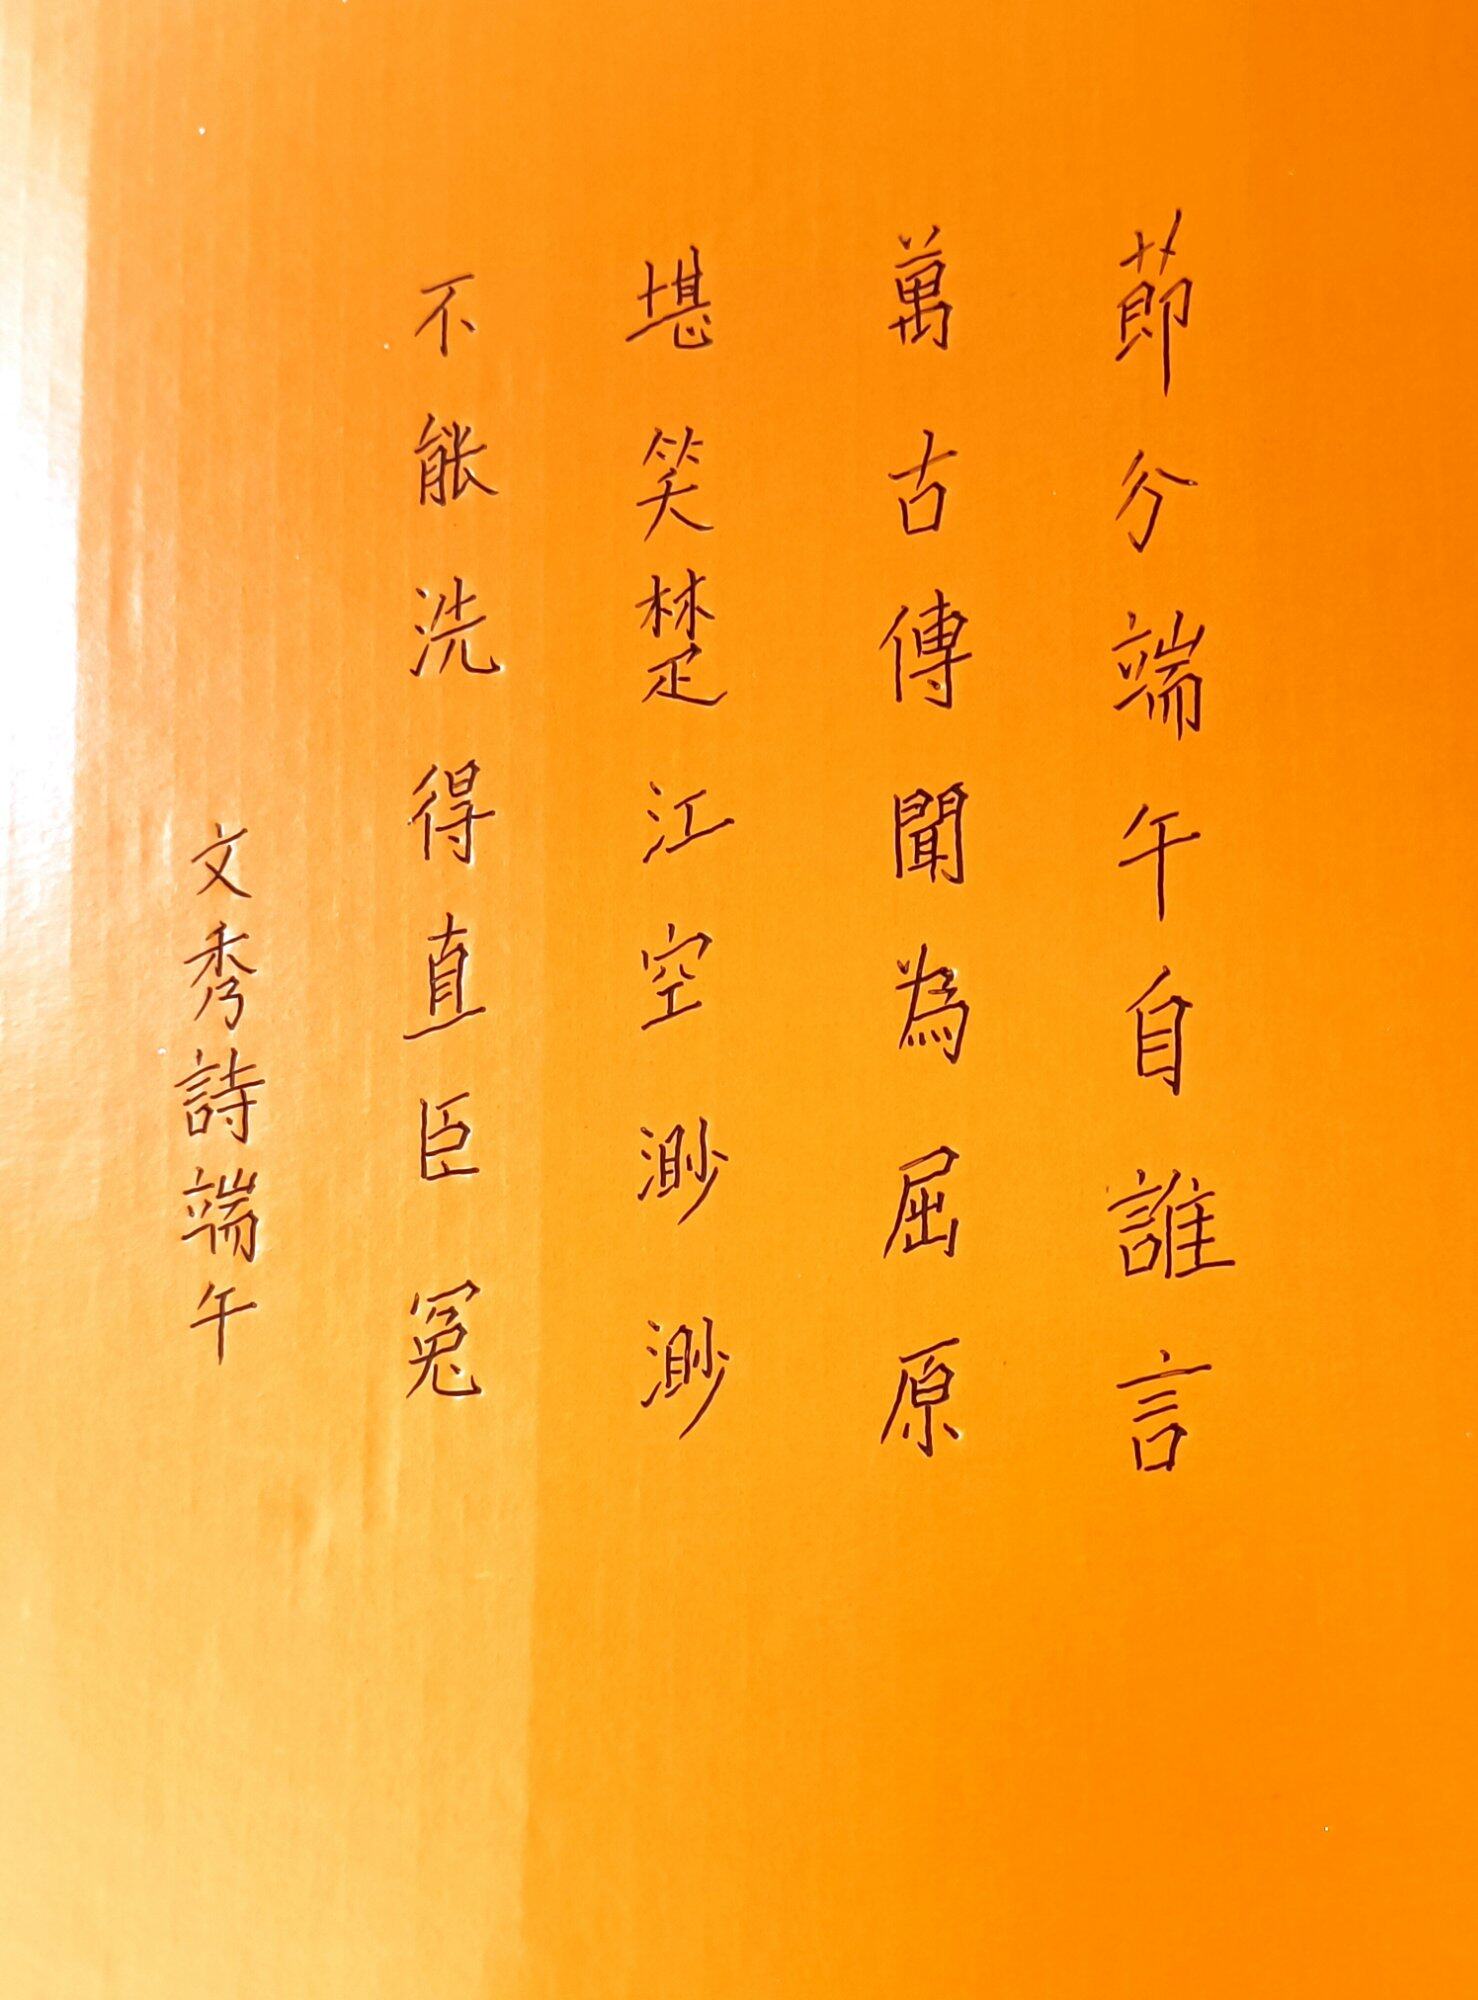 節分端午自誰言
萬古傳聞為屈原
堪笑楚江空渺渺
不能洗得直臣冤
文秀詩端午